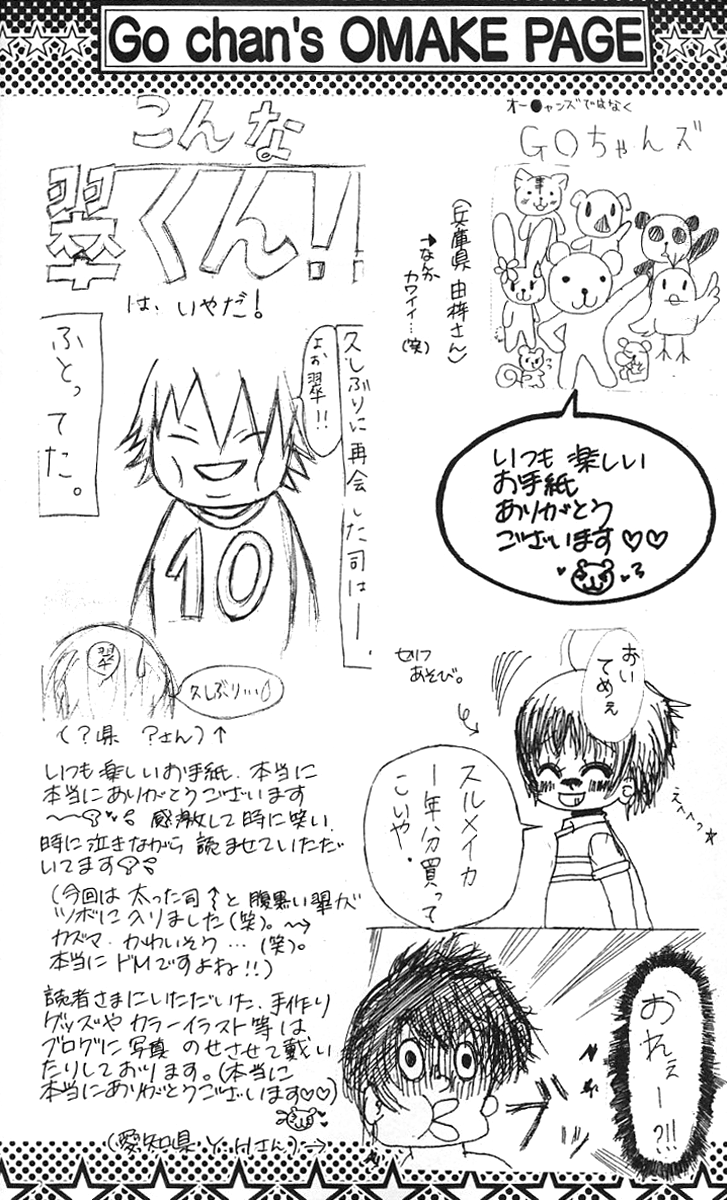 Go chan's OMAKE PAGE
オー●ャンズではなく
GOちゃんズ
(兵庫県 由梓さん)
→なんか
カワイイ…
(笑)
いつも楽しい
お手紙
ありがとう
ございます♡♡
こんな
翠くん!
は、いやだ!
久しぶりに再会した司はー、
よぉ翠!!
ふとってた。
10
翠
久しぶり…
(?県 ?さん)↑
いつも楽しいお手紙、本当に
本当にありがとうございます
感激して時に笑い、
時に泣きながら 読ませていただ
いてます
(今回は 太った司↑と腹黒い翠が
ツボに入りました(笑)。
カズマ、かわいそう…(笑)。
本当に ドMですよね!!)
読者さまにいただいた、手作り
グッズや カラーイラスト等は
ブログに写真 のせさせて戴い
たりしております。(本当に
本当にありがとうございます♡♡)
(愛知県 Y・Hさん)→
セリフ
あそび。
おい
てめぇ
スルメイカ
1年分買って
こいや。
えへへっ☆
おれぇー?!!
ブッ